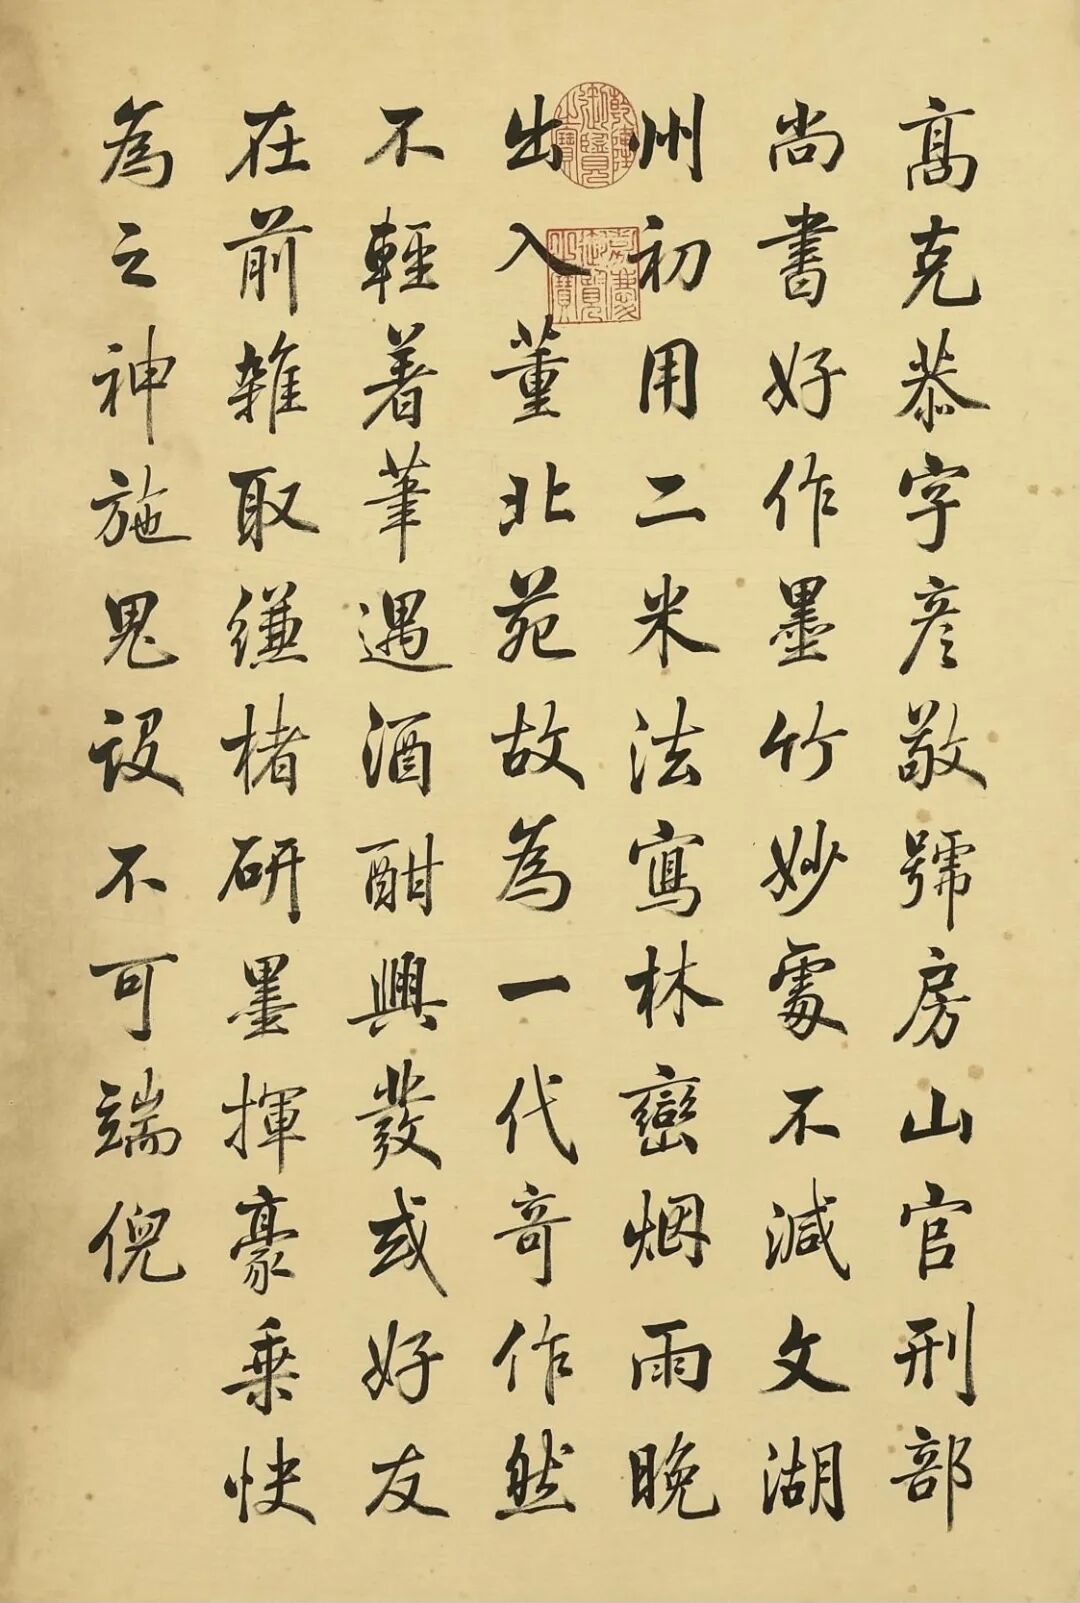 高克恭字彦敬號房山官刑部
尚書好作墨竹妙處不減文湖
州初用二米法寫林巒烟雨晚
出入董北苑故為一代奇作然
不輕着筆遇酒酣興發或好友
在前雜取縑楮研墨揮豪乗快
為之神施鬼設不可端倪
乾隆御覽之寶
嘉慶御覽之寶